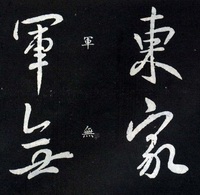 東家
軍
無
軍無